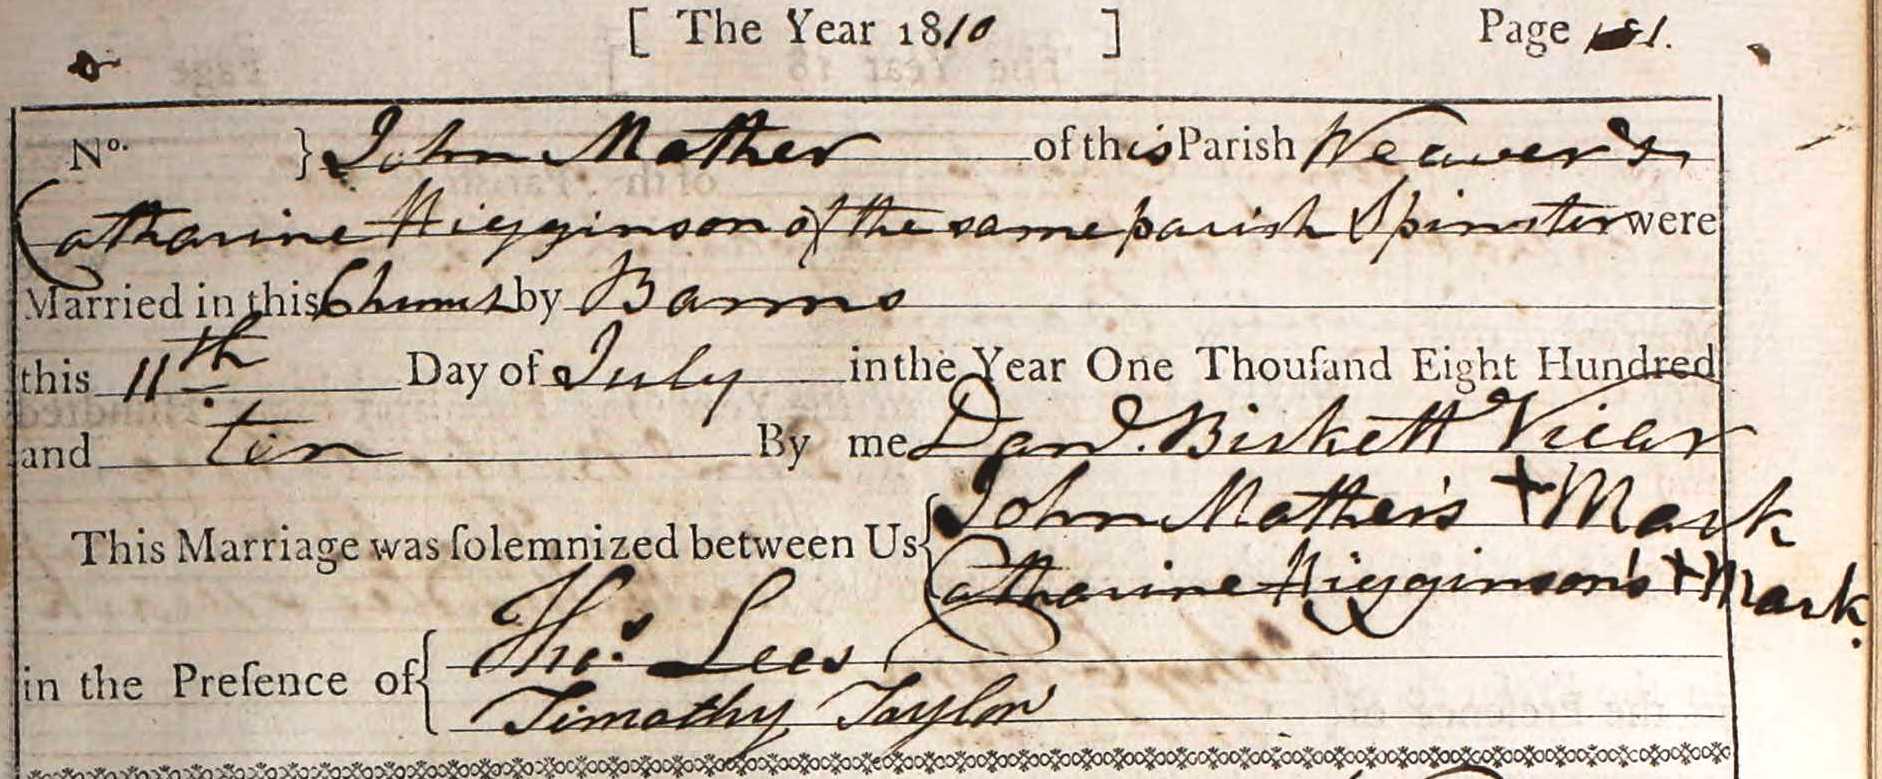 [ The Year 1810 ] Page 181.
No. } John Mather of this Parish Weaver &
Catharine Higginson of the same parish Spinster were
Married in this Church by Banns
this 11th Day of July in the Year One Thouſand Eight Hundred
and ten By me Dand. Birkett Vicar
This Marriage was ſolemnized between Us { John Mather's + Mark
Catharine Higginson's + Mark.
in the Preſence of { Thos. Lees
Timothy Taylor